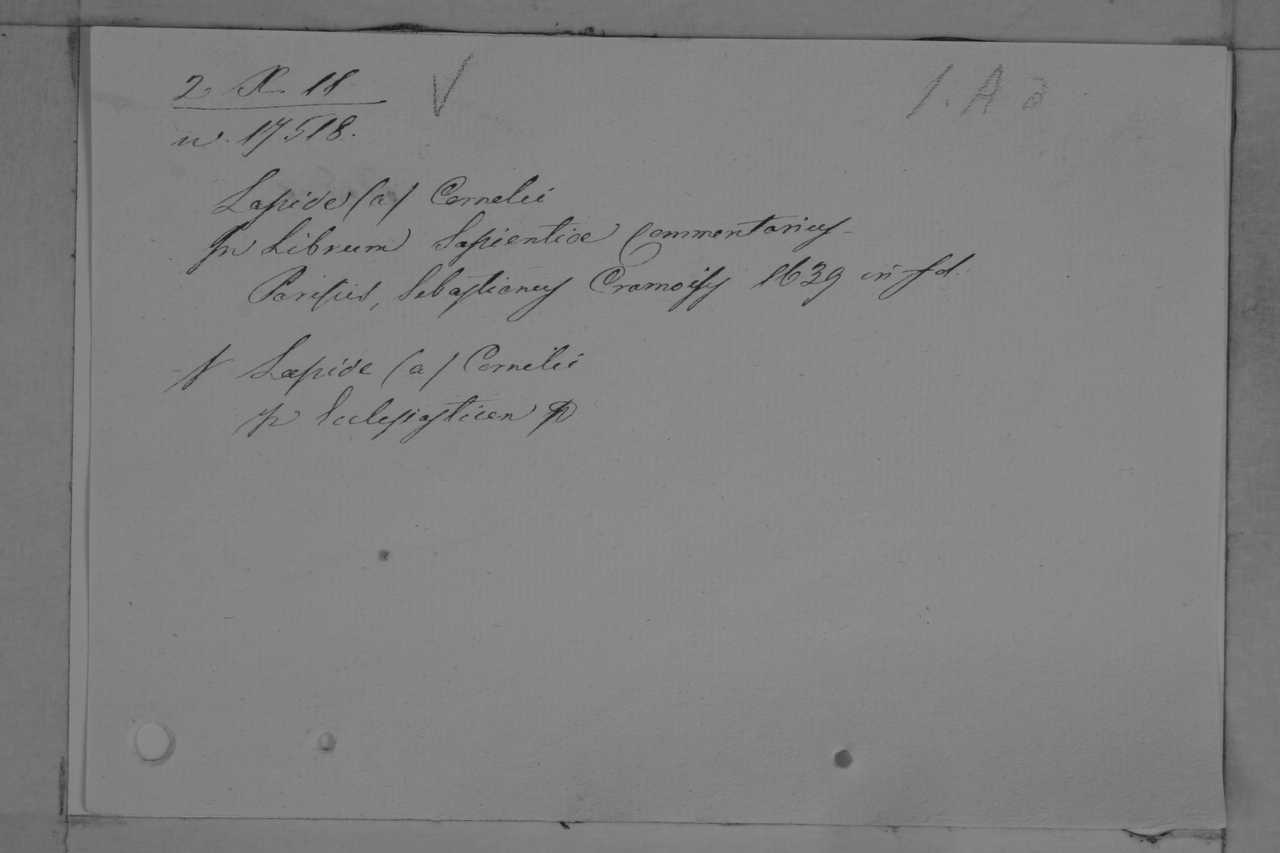 2 R 11
V
1. A a
n. 17518.
Lapide (a) Cornelii
In Librum Sapientiae Commentarius
Parisiis, Sebastianus Cramoisy 1639 in fol.
N Lapide (a) Cornelii
In Ecclesiasticen